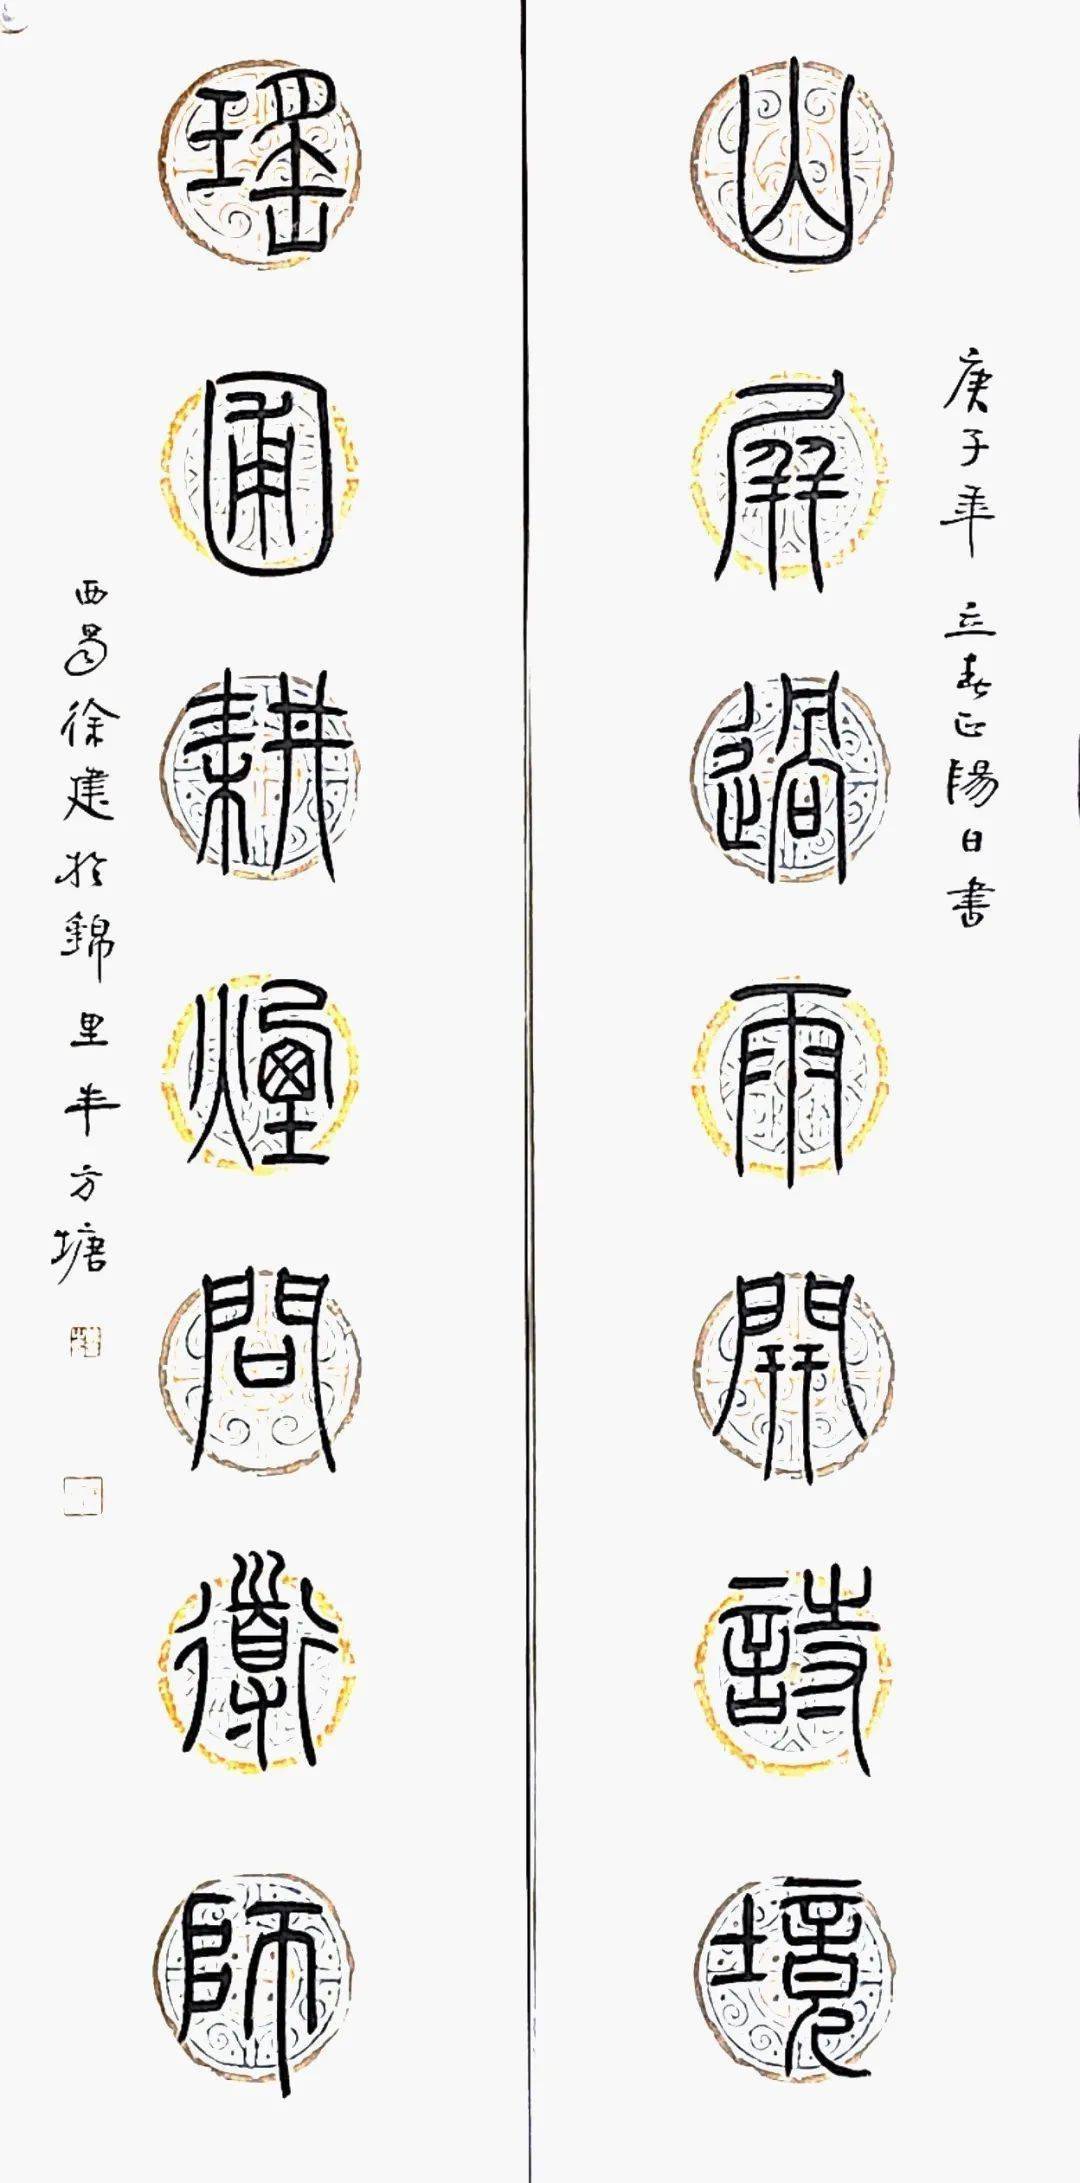 庚子年 立春正陽日書
山屏過雨開詩境
瑤圃耕煙問道師
西昌徐建於錦里半方塘